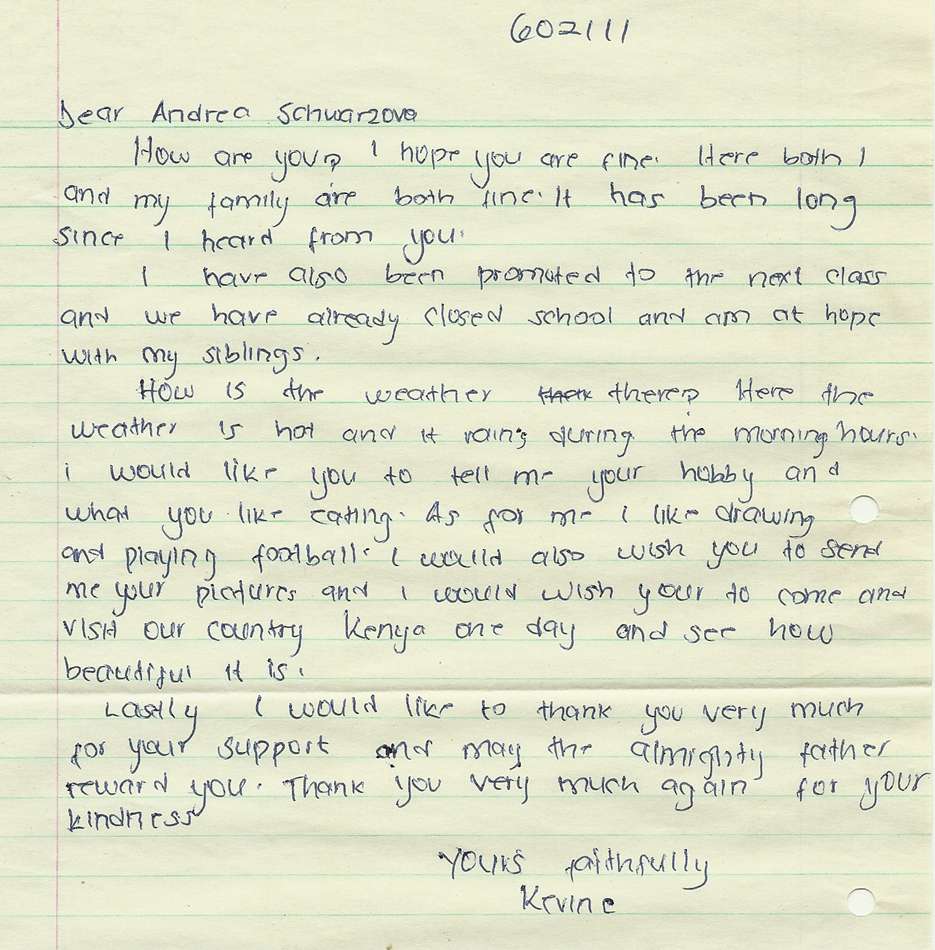 602111
Dear Andrea Schwarzova
How are you? I hope you are fine. Here both I
and my family are both fine. It has been long
since I heard from you.
I have also been promoted to the next class
and we have already closed school and am at hope
with my siblings.
How is the weather there? Here the
weather is hot and it rains during the morning hours.
i would like you to tell me your hobby and
what you like eating. As for me i like drawing
and playing football. I would also wish you to send
me your pictures and i would wish your to come and
visit our country Kenya one day and see how
beautiful it is.
Lastly I would like to thank you very much
for your support and may the almighty father
reward you. Thank you very much again for your
kindness
Yours faithfully
Kevine